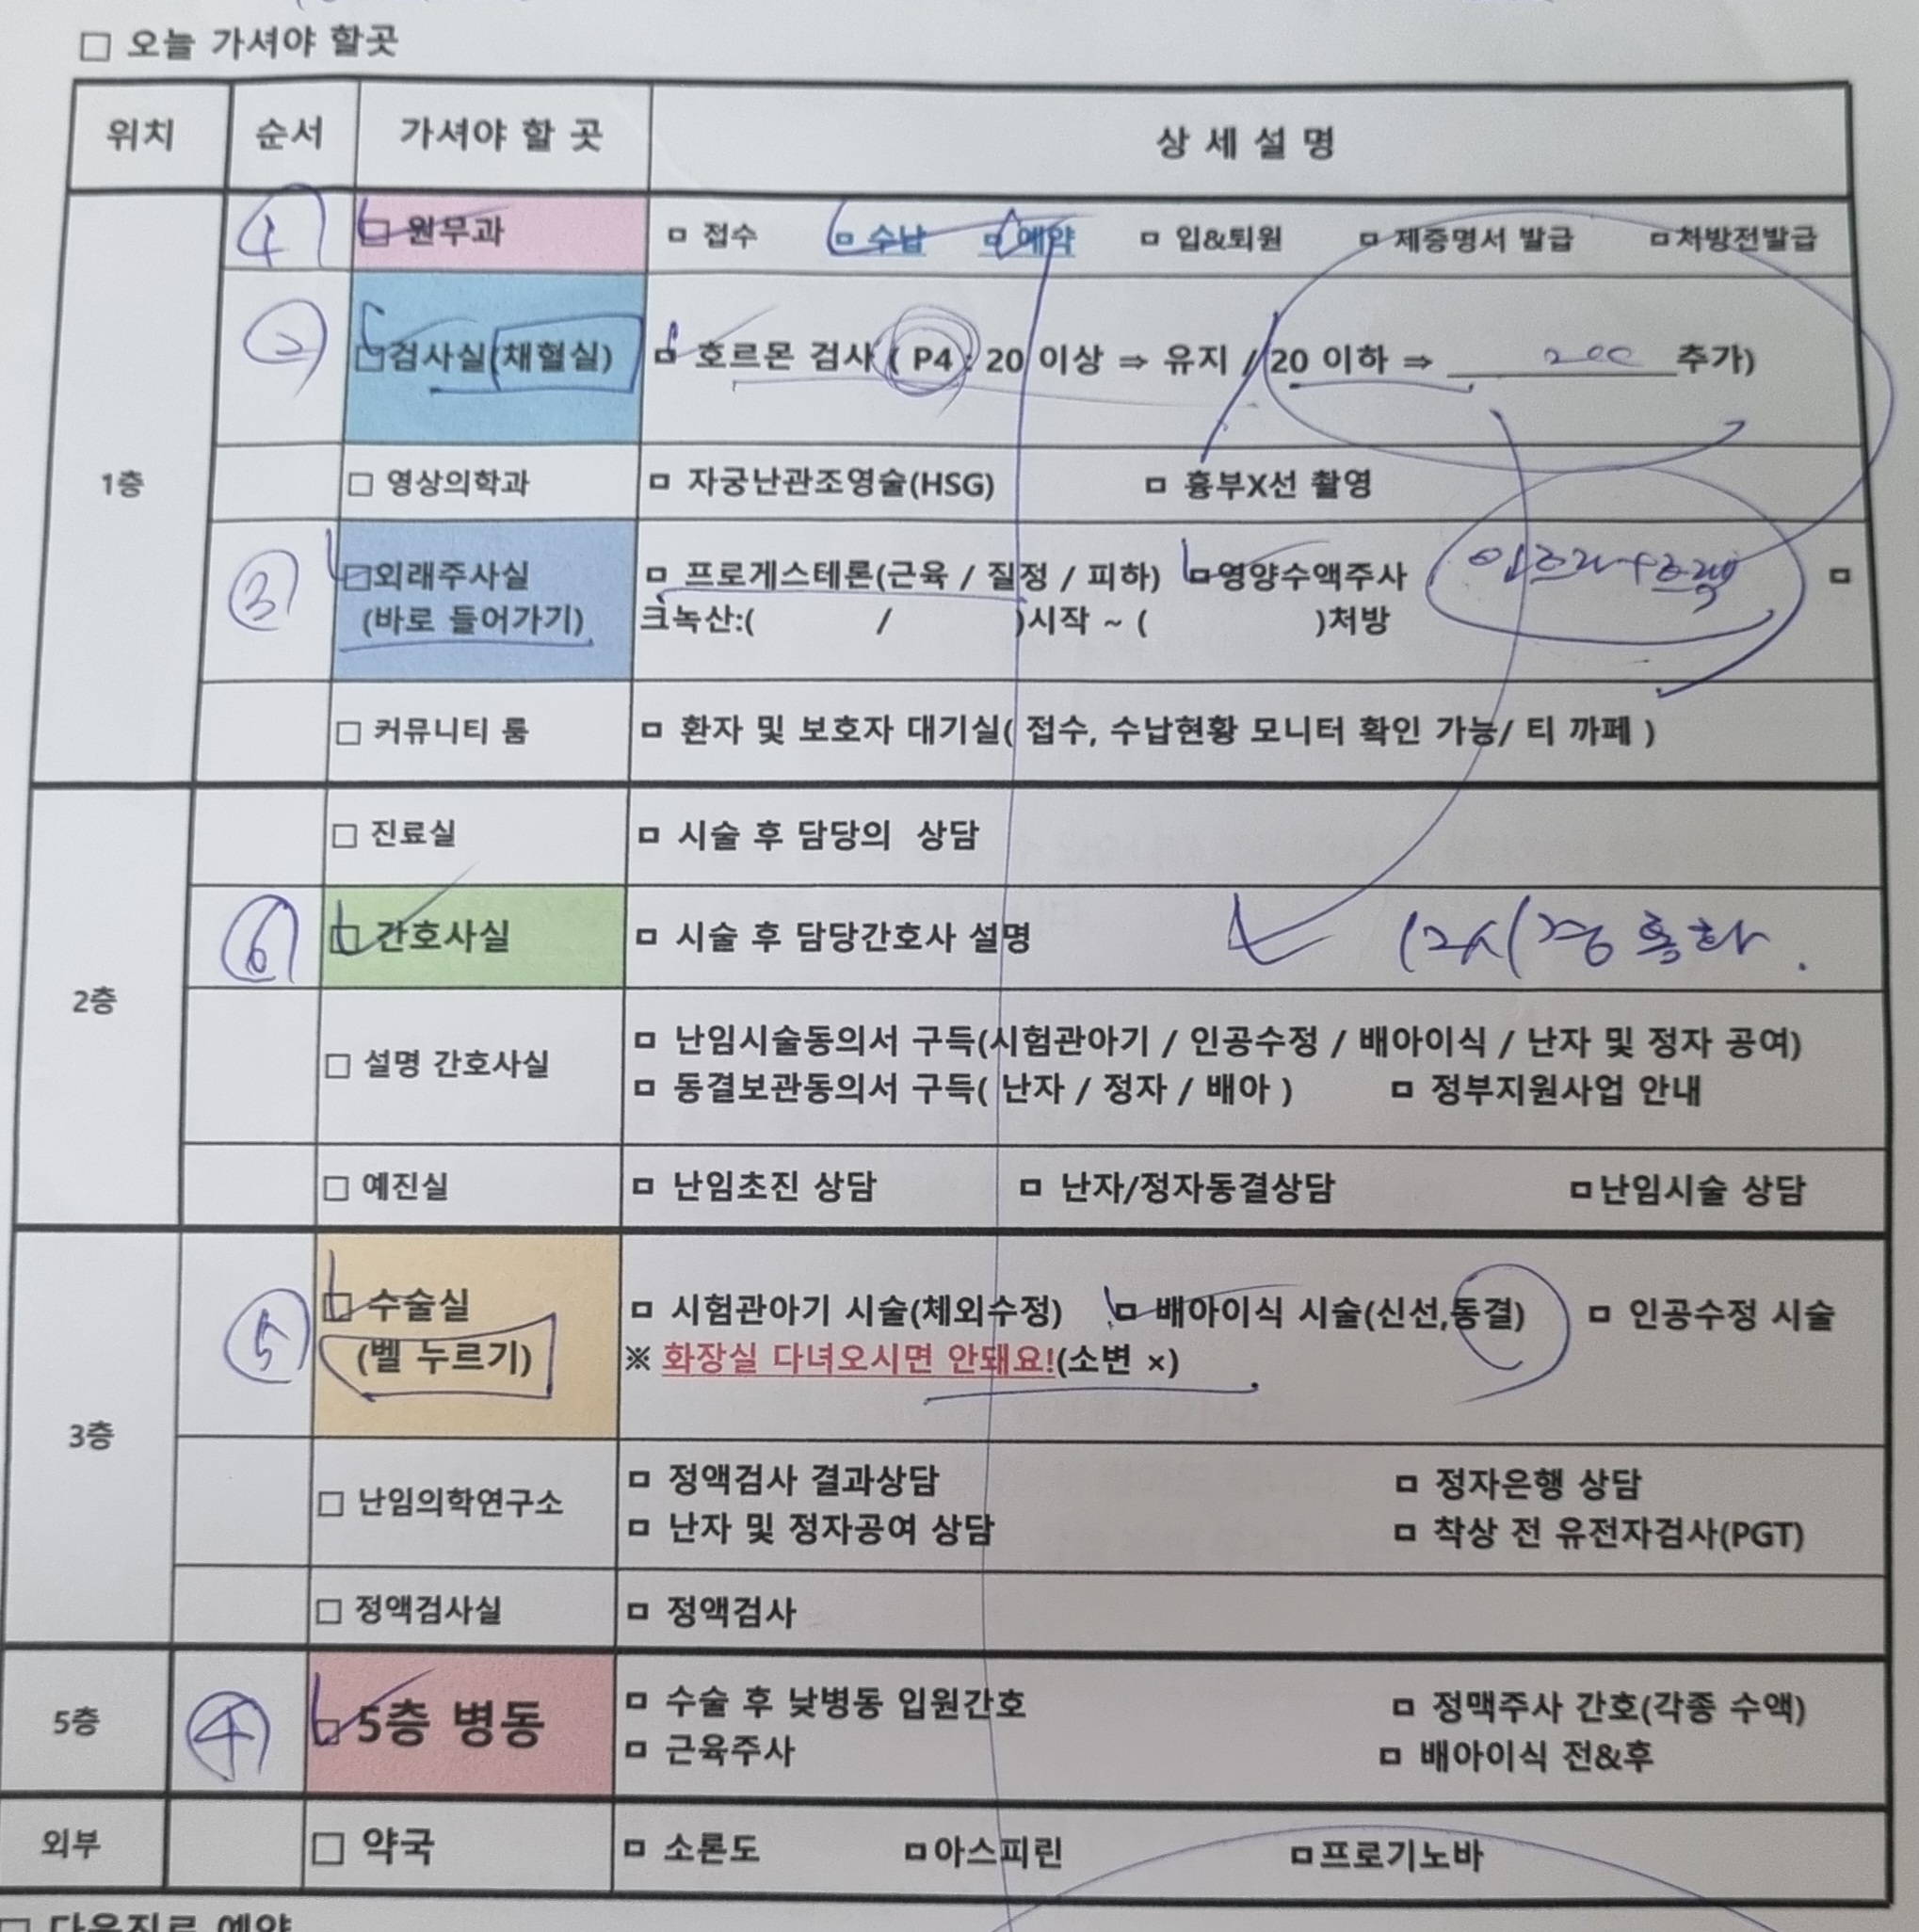 □ 오늘 가셔야 할곳
위치 순서 가셔야 할 곳 상 세 설 명
1층
① □ 원무과 □ 접수 □ 수납 □ 예약 □ 입&퇴원 □ 제증명서 발급 □처방전발급
② □검사실(채혈실) □ 호르몬 검사 ( P4 : 20 이상 ⇒ 유지 / 20 이하 ⇒ 200 추가)
□ 영상의학과 □ 자궁난관조영술(HSG) □ 흉부X선 촬영
③ □외래주사실 □ 프로게스테론(근육 / 질정 / 피하) □영양수액주사 □
(바로 들어가기) 크녹산:( / )시작 ~ ( )처방
□ 커뮤니티 룸 □ 환자 및 보호자 대기실( 접수, 수납현황 모니터 확인 가능/ 티 까페 )
2층
□ 진료실 □ 시술 후 담당의 상담
⑥ □ 간호사실 □ 시술 후 담당간호사 설명 12시경 통화.
□ 설명 간호사실 □ 난임시술동의서 구득(시험관아기 / 인공수정 / 배아이식 / 난자 및 정자 공여)
□ 동결보관동의서 구득( 난자 / 정자 / 배아 ) □ 정부지원사업 안내
□ 예진실 □ 난임초진 상담 □ 난자/정자동결상담 □난임시술 상담
3층
⑤ □ 수술실 □ 시험관아기 시술(체외수정) □ 배아이식 시술(신선,동결) □ 인공수정 시술
(벨 누르기) ※ 화장실 다녀오시면 안돼요!(소변 ×)
□ 난임의학연구소 □ 정액검사 결과상담 □ 정자은행 상담
□ 난자 및 정자공여 상담 □ 착상 전 유전자검사(PGT)
□ 정액검사실 □ 정액검사
5층 ④ □5층 병동 □ 수술 후 낮병동 입원간호 □ 정맥주사 간호(각종 수액)
□ 근육주사 □ 배아이식 전&후
외부 □ 약국 □ 소론도 □아스피린 □프로기노바
□ 다음진료 예약